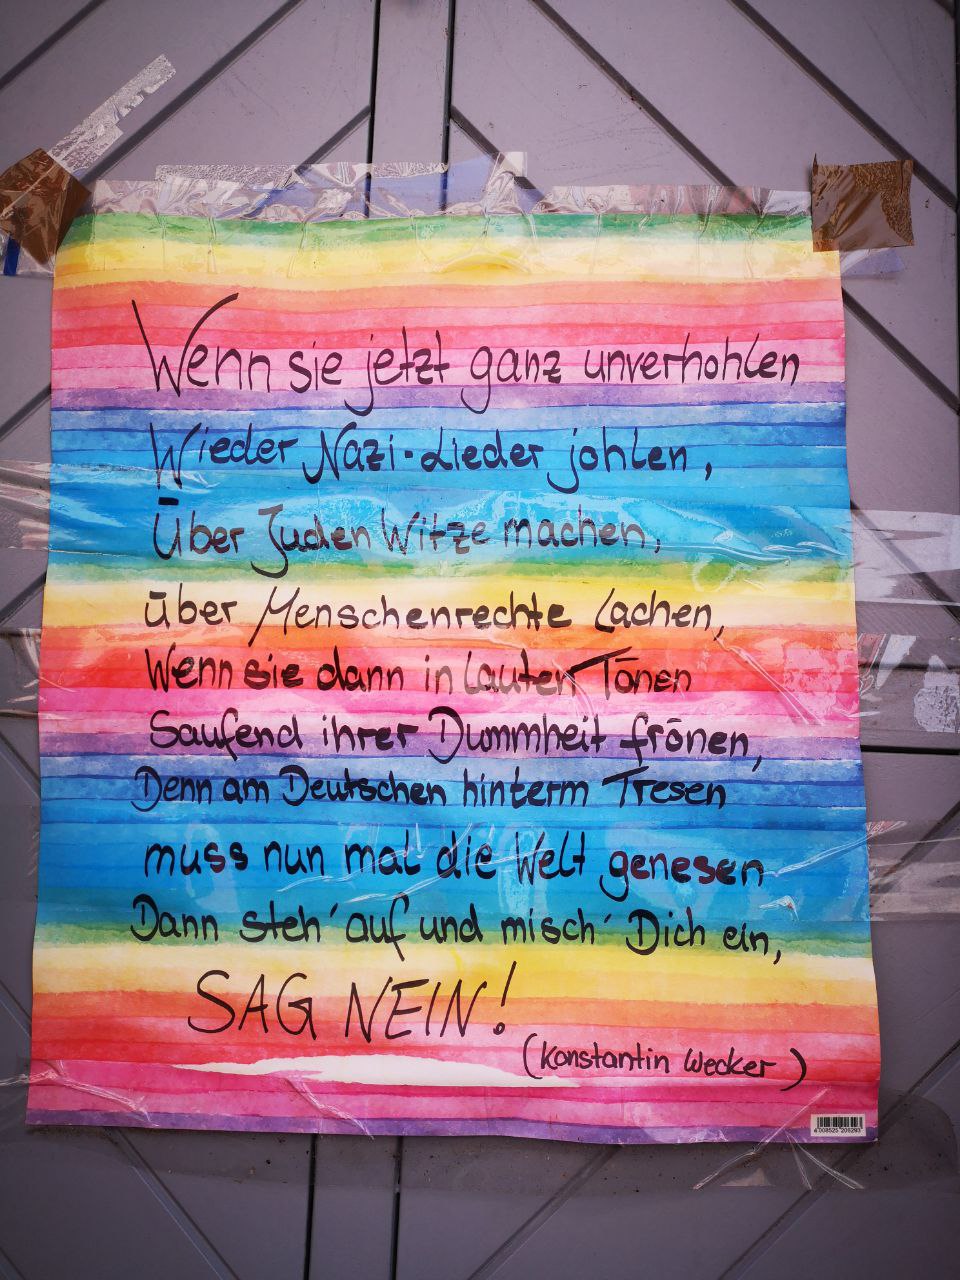 Wenn sie jetzt ganz unverhohlen
Wieder Nazi-Lieder johlen,
Über Juden Witze machen,
über Menschenrechte Lachen,
Wenn sie dann in lauten Tönen
Saufend ihrer Dummheit frönen,
Denn am Deutschen hinterm Tresen
muss nun mal die Welt genesen
Dann steh' auf und misch' Dich ein,
SAG NEIN!
(Konstantin Wecker)
4 008525 206293